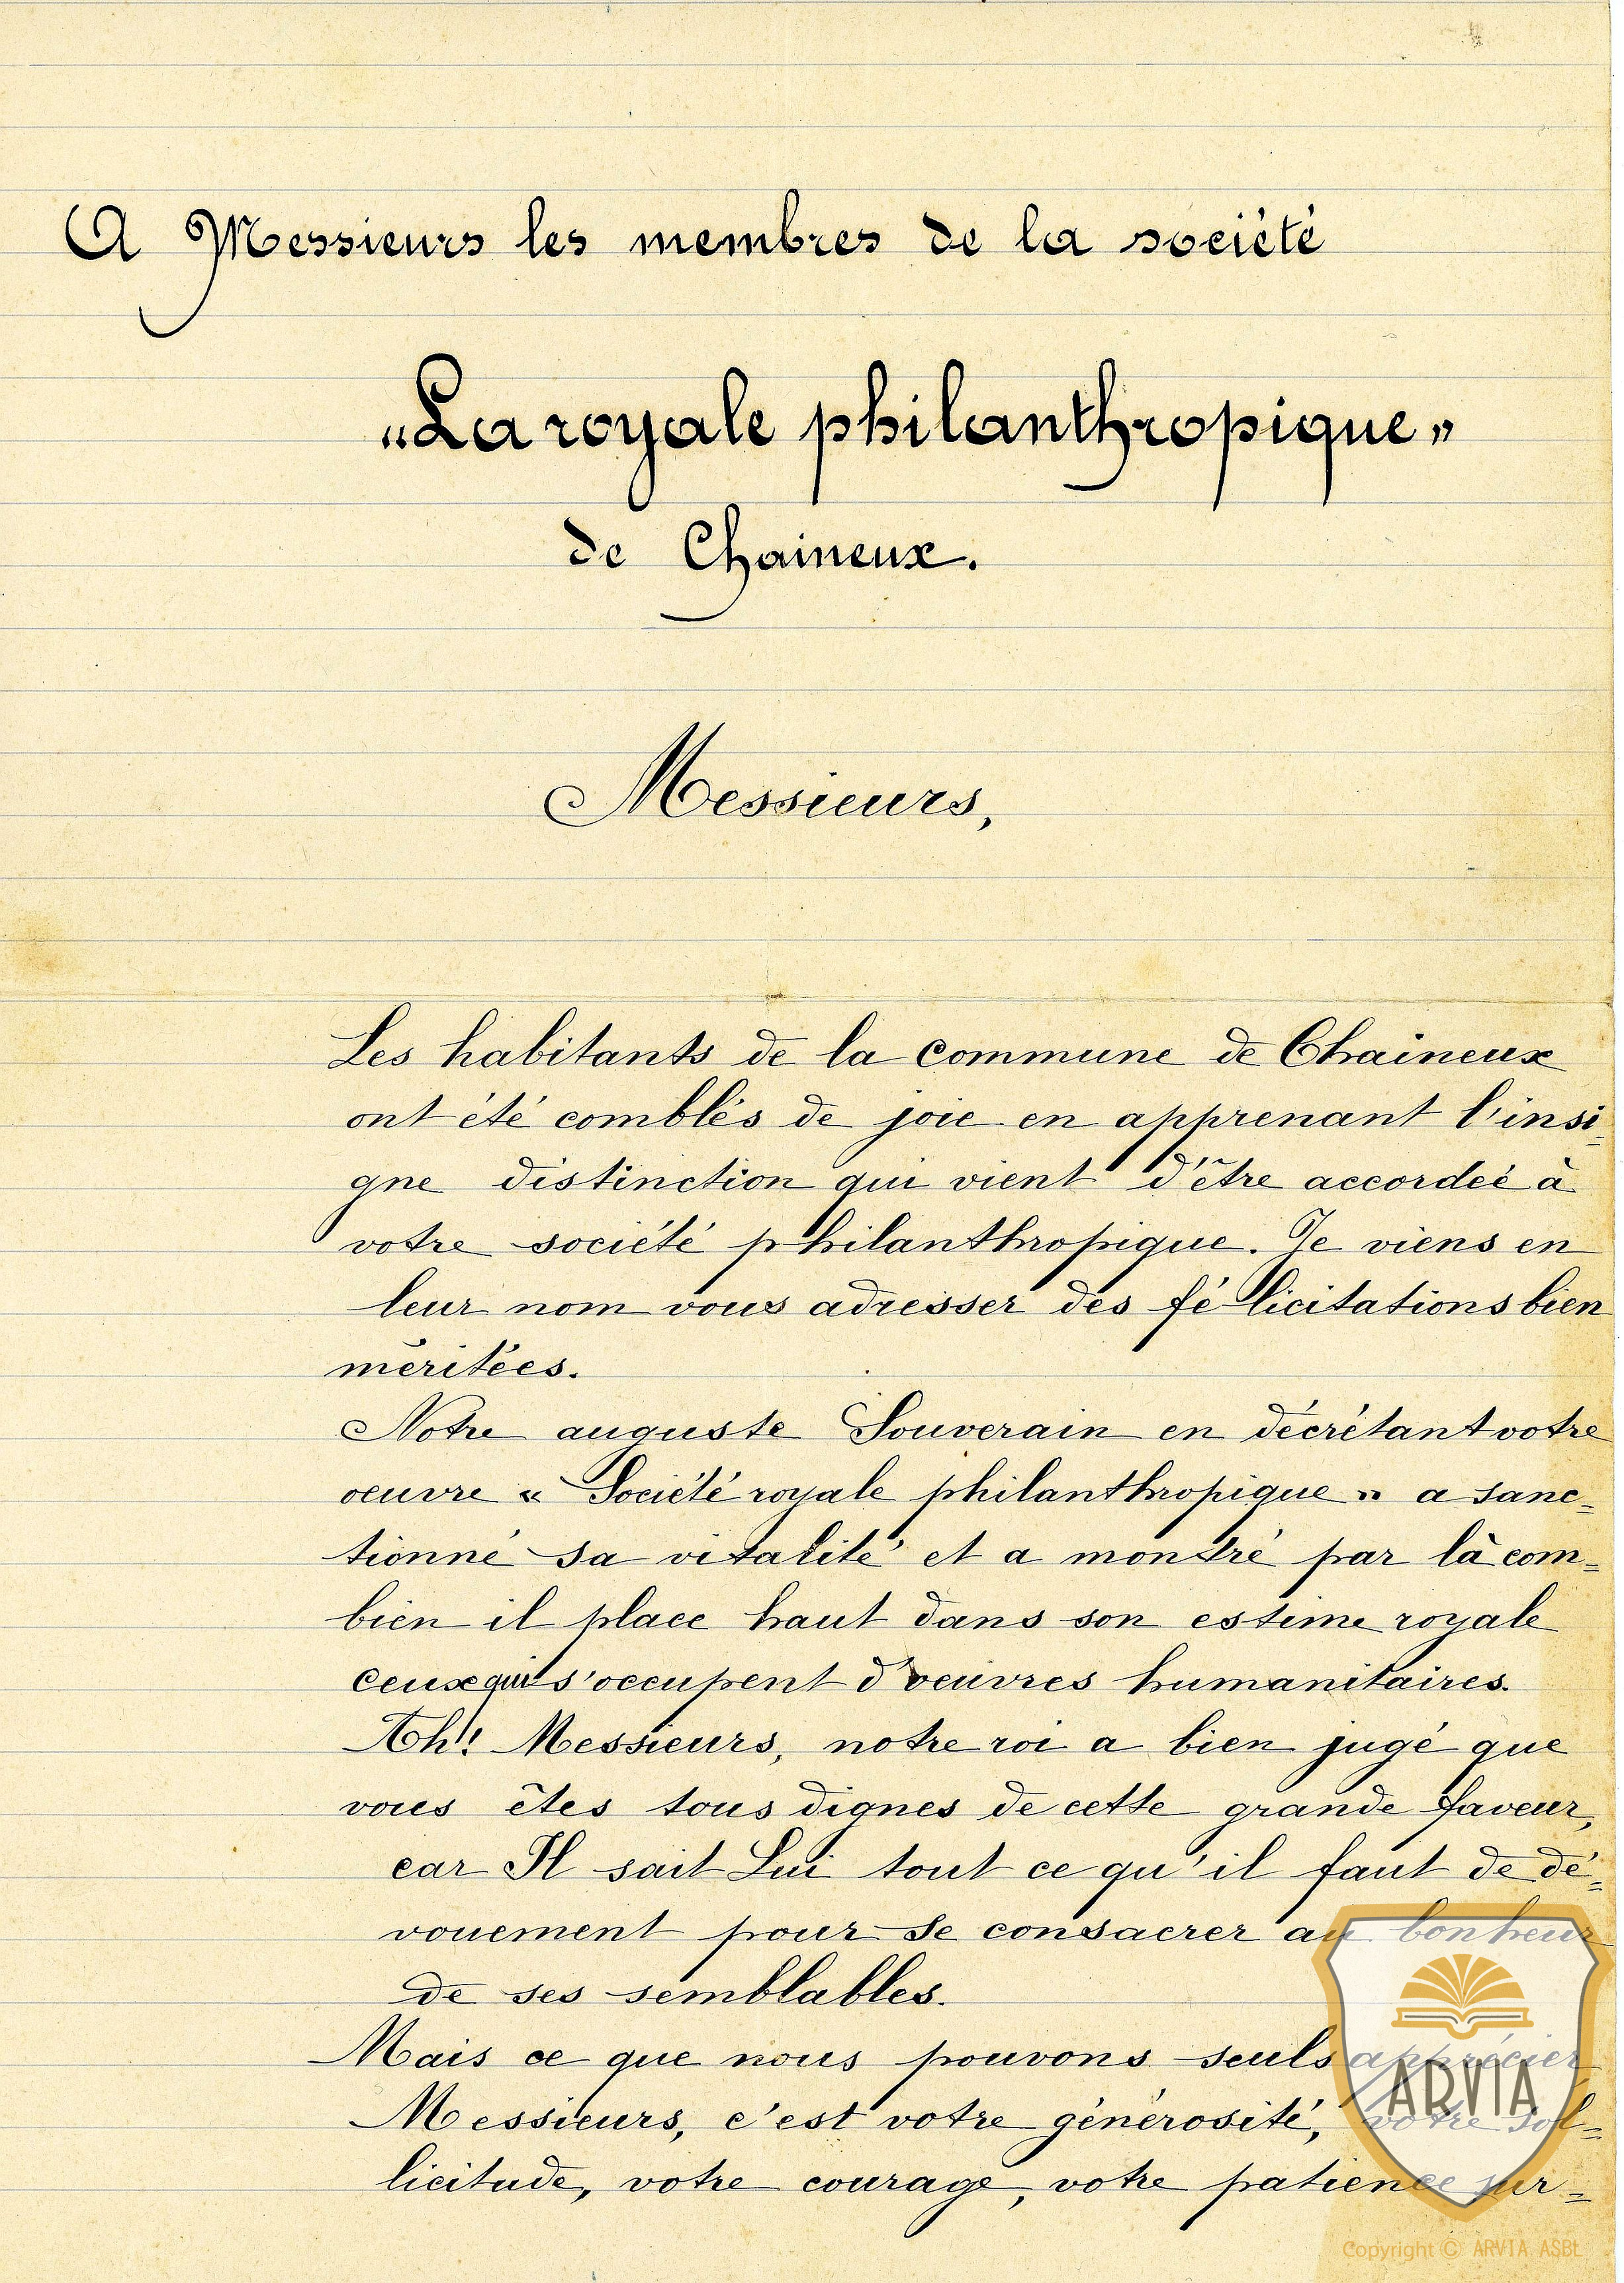 A Messieurs les membres de la société
"La royale philanthropique"
de Chaineux.
Messieurs,
Les habitants de la commune de Chaineux
ont été comblés de joie en apprenant l'insi-
gne distinction qui vient d'être accordée à
votre société philanthropique. Je viens en
leur nom vous adresser des félicitations bien
méritées.
Notre auguste Souverain en décrétant votre
oeuvre « Société royale philanthropique » a sanc=
tionné sa vitalité et a montré par là com=
bien il place haut dans son estime royale
ceux qui s'occupent d'oeuvres humanitaires.
Ah! Messieurs, notre roi a bien jugé que
vous êtes tous dignes de cette grande faveur,
car Il sait Lui tout ce qu'il faut de dé=
vouement pour se consacrer au bonheur
de ses semblables.
Mais ce que nous pouvons seuls apprécier
Messieurs, c'est votre générosité, votre sol=
licitude, votre courage, votre patience sur=
ARVIA
Copyright © ARVIA ASBL